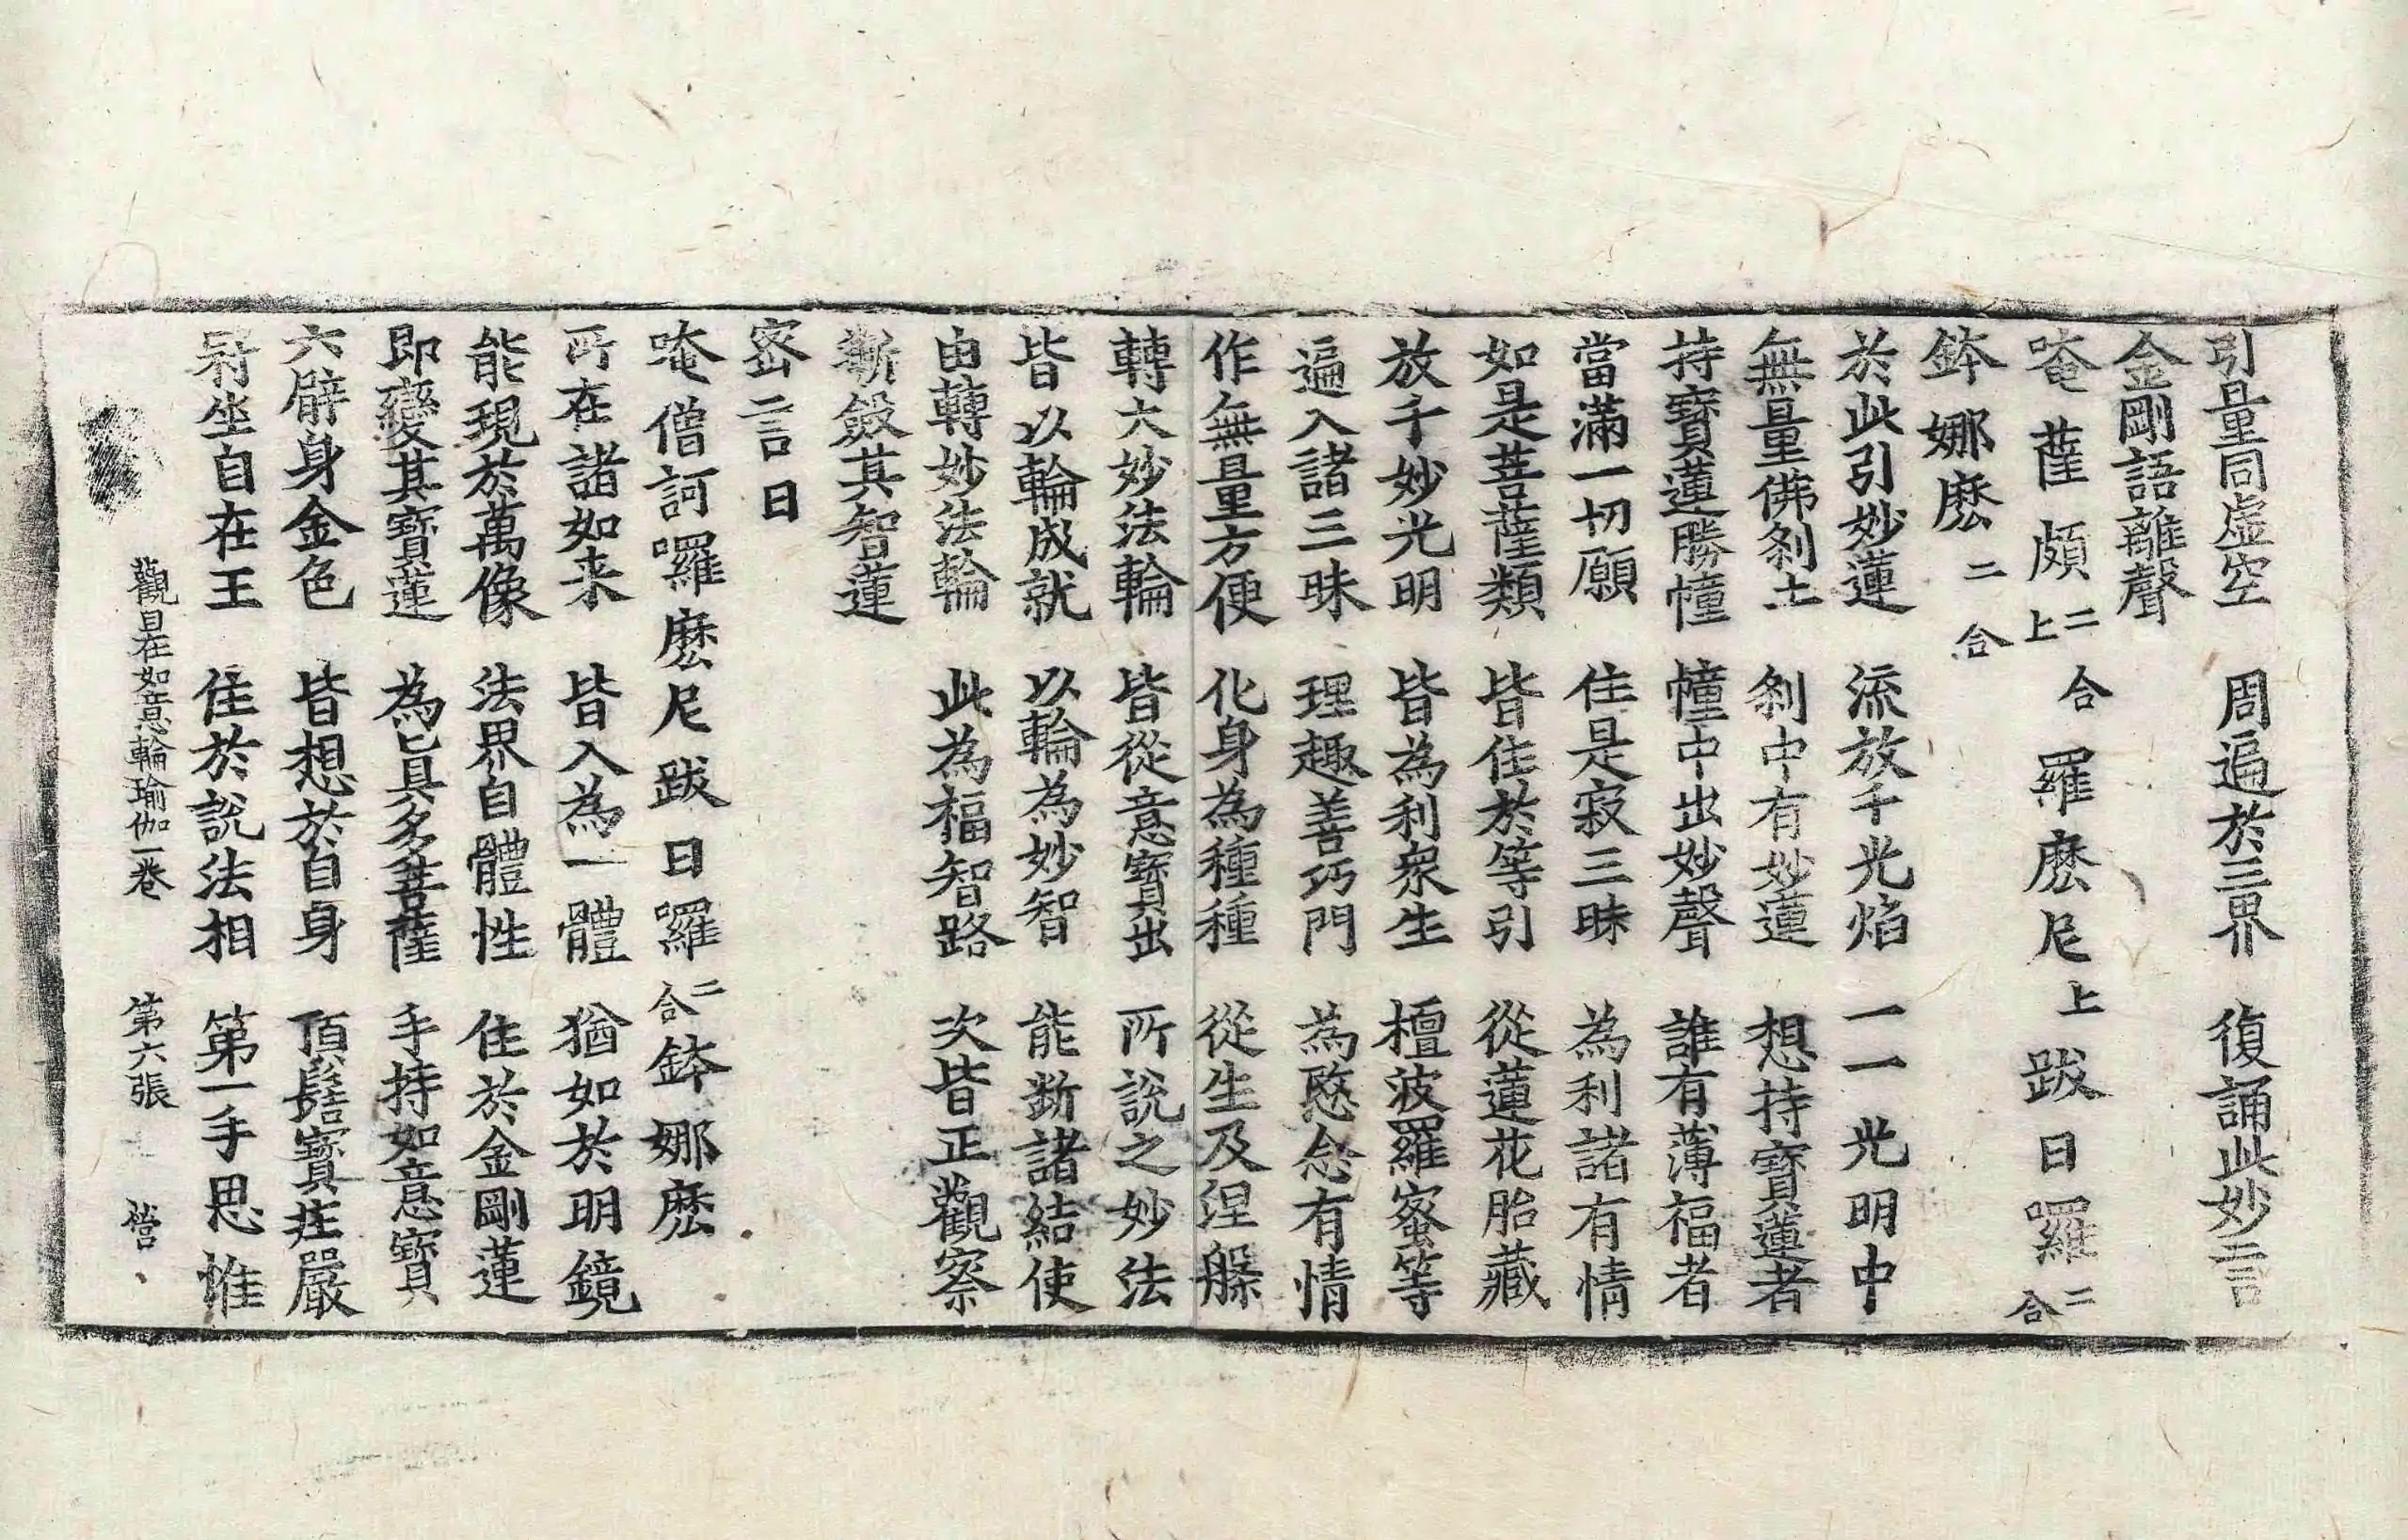 引量同虛空　周遍於三界　復誦此妙言
金剛語離聲
唵薩頗二合上羅麽尼上跋日囉二合
鉢娜麽二合
於此引妙蓮　流放千光焰　一一光明中
無量佛剎土　剎中有妙蓮　想持寶蓮者
持寶蓮勝幢　幢中出妙聲　誰有薄福者
當滿一切願　住是寂三昧　為利諸有情
如是菩薩類　皆住於等引　從蓮花胎藏
放千妙光明　皆為利衆生　檀波羅蜜等
遍入諸三昧　理趣善巧門　為愍念有情
作無量方便　化身為種種　從生及涅槃
轉大妙法輪　皆從意寶出　所說之妙法
皆以輪成就　以輪為妙智　能斷諸結使
由轉妙法輪　此為福智路　次皆正觀察
漸斂其智蓮
密言曰
唵僧訶囉麽尼跋日囉二合鉢娜麽
所在諸如来　皆入為一體　猶如於明鏡
能現於萬像　法界自體性　住於金剛蓮
即變其寶蓮　為真多菩薩　手持如意寶
六臂身金色　皆想於自身　頂髻寶莊嚴
冠坐自在王　住於說法相　第一手思惟
觀自在如意輪瑜伽一卷　第六張　營